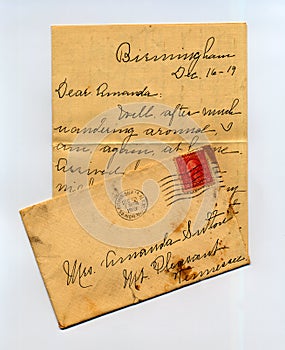 Birmingham
Dec. 16-19
Dear Amanda:
Well, after much
wandering around I
am, again, at home
Arrived
Mrs. Amanda Sutton
Mt Pleasant
Tennessee